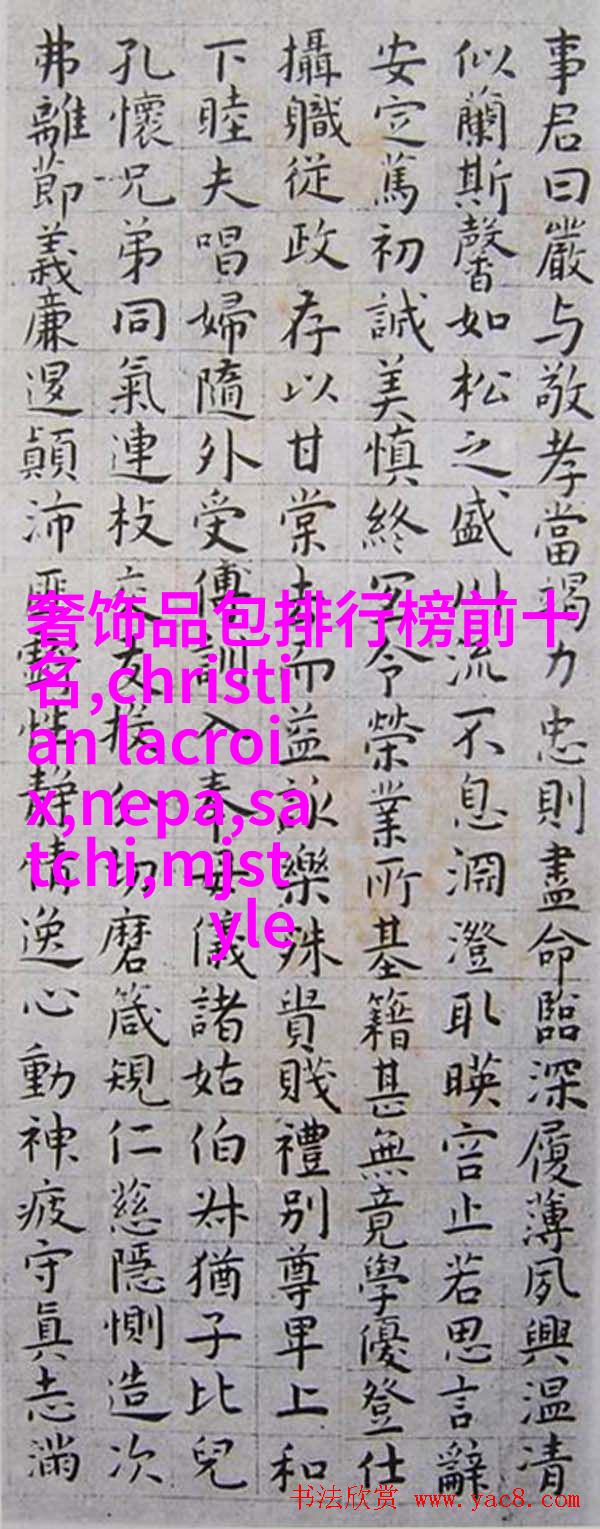 事君曰嚴与敬孝當竭力忠則盡命臨深履薄夙興温清
似蘭斯馨如松之盛川流不息淵澄取暎容止若思言辭
安定篤初誠美慎終宜令榮業所基籍甚無竟學優登仕
攝職從政存以甘棠去而益詠樂殊貴賤禮別尊卑上和
下睦夫唱婦隨外受傅訓入奉母儀諸姑伯叔猶子比兒
孔懷兄弟同氣連枝交友投分切磨箴規仁慈隱惻造次
弗離節義廉退顛沛匪虧性静情逸心動神疲守真志滿
奢饰品包排行榜前十
名,christi
an lacroi
x,nepa,sa
tchi,mjst
yle
书法欣赏 www.yac8.com